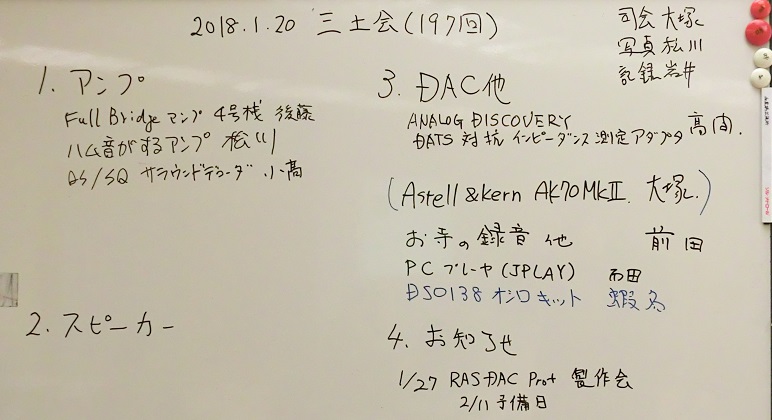 2018.1.20 三土会(197回)
司会 大塚
写真 松川
記録 岩井
1. アンプ
Full Bridge アンプ 4号機 後藤
ハム音がするアンプ 松川
QS/SQ サラウンドデコーダ 小高
2. スピーカー
3. DAC他
ANALOG DISCOVERY
DATS 対抗 インピーダンス 測定アダプタ 高間.
(Astell & Kern AK70MKII. 大塚.)
お寺の録音 他 前田
PC プレーヤ (JPLAY) 雨田
DSO138 オシロキット 蝦名
4. お知らせ
1/27 RASDAC Pro+ 製作会
2/11 予備日